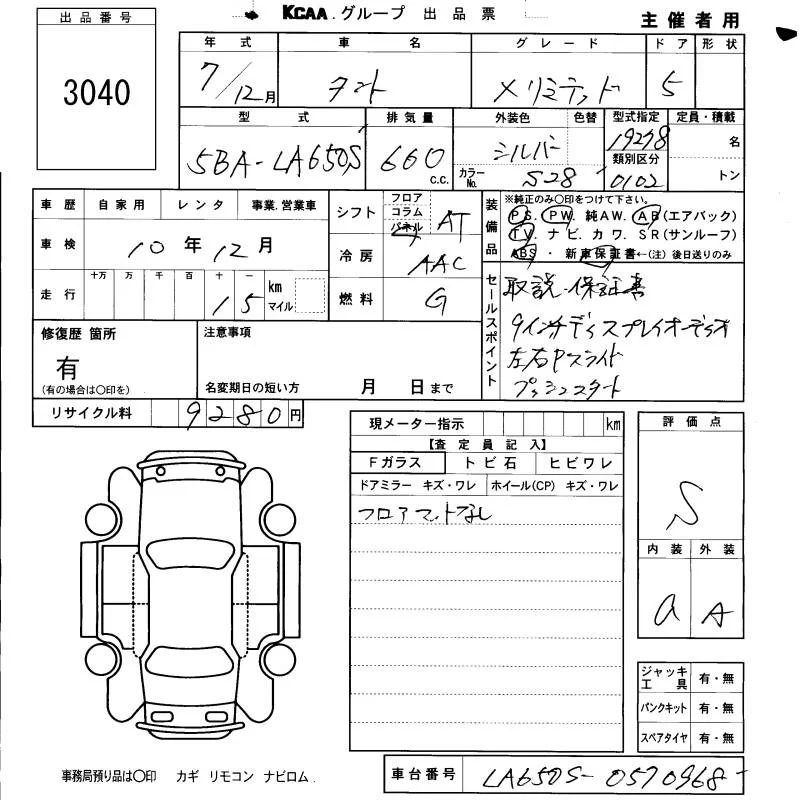 KCAA.グループ 出品票
主催者用
出品番号
3040
年式 車名 グレード ドア 形状
7/12月 タント Xリミテッド 5
型式 排気量 外装色 色替 型式指定 定員・積載
5BA-LA650S 660 c.c. シルバー 19278 名
カラーNo. S28 類別区分 0102 トン
車歴 自家用 レンタ 事業.営業車
車検 10年12月
走行 十万 万 千 百 十 一
15 km マイル
シフト フロア コラム パネル AT
冷房 AAC
燃料 G
装備品 ※純正のみ〇印をつけて下さい。
PS. PW. 純AW. AB(エアバック)
TV. ナビ. カワ. SR(サンルーフ)
ABS ・ 新車保証書←(注)後日送りのみ
セールスポイント
取説・保証書
9インチディスプレイオーディオ
左右Pスライド
プッシュスタート
修復歴 箇所
有
(有の場合は〇印を)
注意事項
名変期日の短い方 月 日まで
リサイクル料 9280円
現メーター指示 km
【査定員記入】
Fガラス トビ石 ヒビワレ
ドアミラー キズ・ワレ ホイール(CP) キズ・ワレ
フロアマットなし
評価点
S
内装 外装
a A
ジャッキ工具 有・無
パンクキット 有・無
スペアタイヤ 有・無
事務局預り品は〇印 カギ リモコン ナビロム.
車台番号 LA650S-0570968-